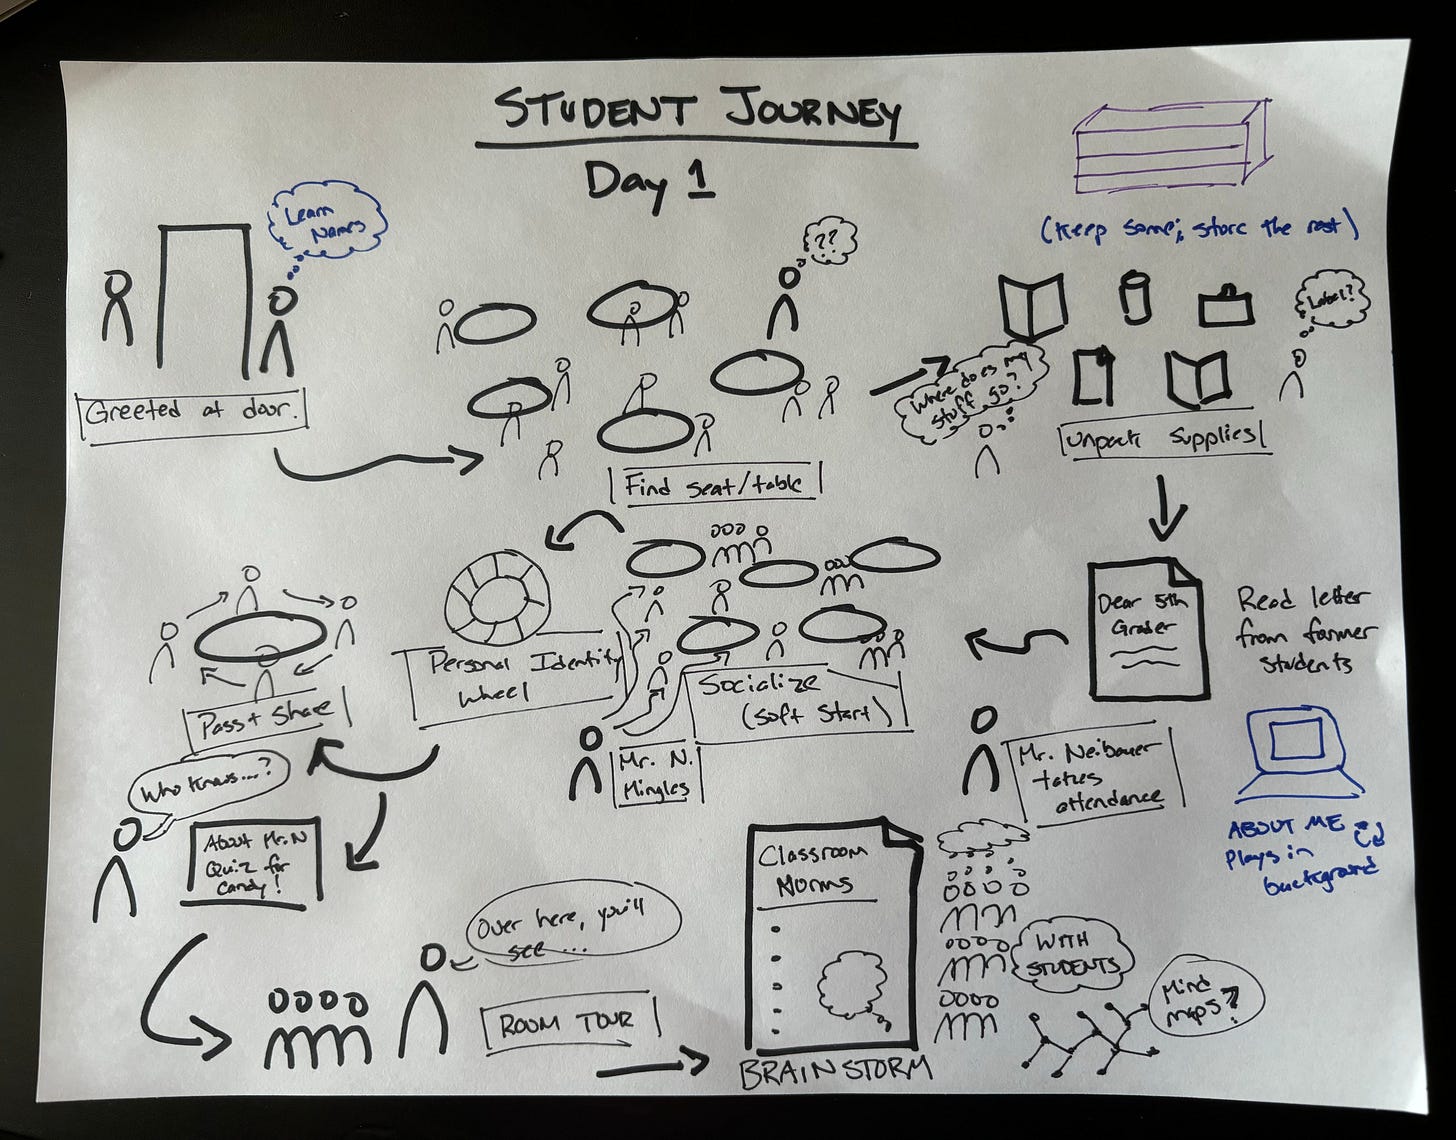 STUDENT JOURNEY
Day 1
Learn
Names
Greeted at door.
??
Find seat/table
(Keep some; store the rest)
Label?
Where does my
stuff go?
Unpack Supplies
Dear 5th
Grader
Read letter
from former
students
Mr. Neibauer
takes
attendance
ABOUT ME
Plays in
background
Socialize
(soft start)
Mr. N.
Mingles
Personal Identity
Wheel
Pass + Share
Who knows....?
About Mr. N
Quiz for
candy!
Over here, you'll
see ...
ROOM TOUR
Classroom
Norms
BRAINSTORM
WITH
STUDENTS
Mind
maps?